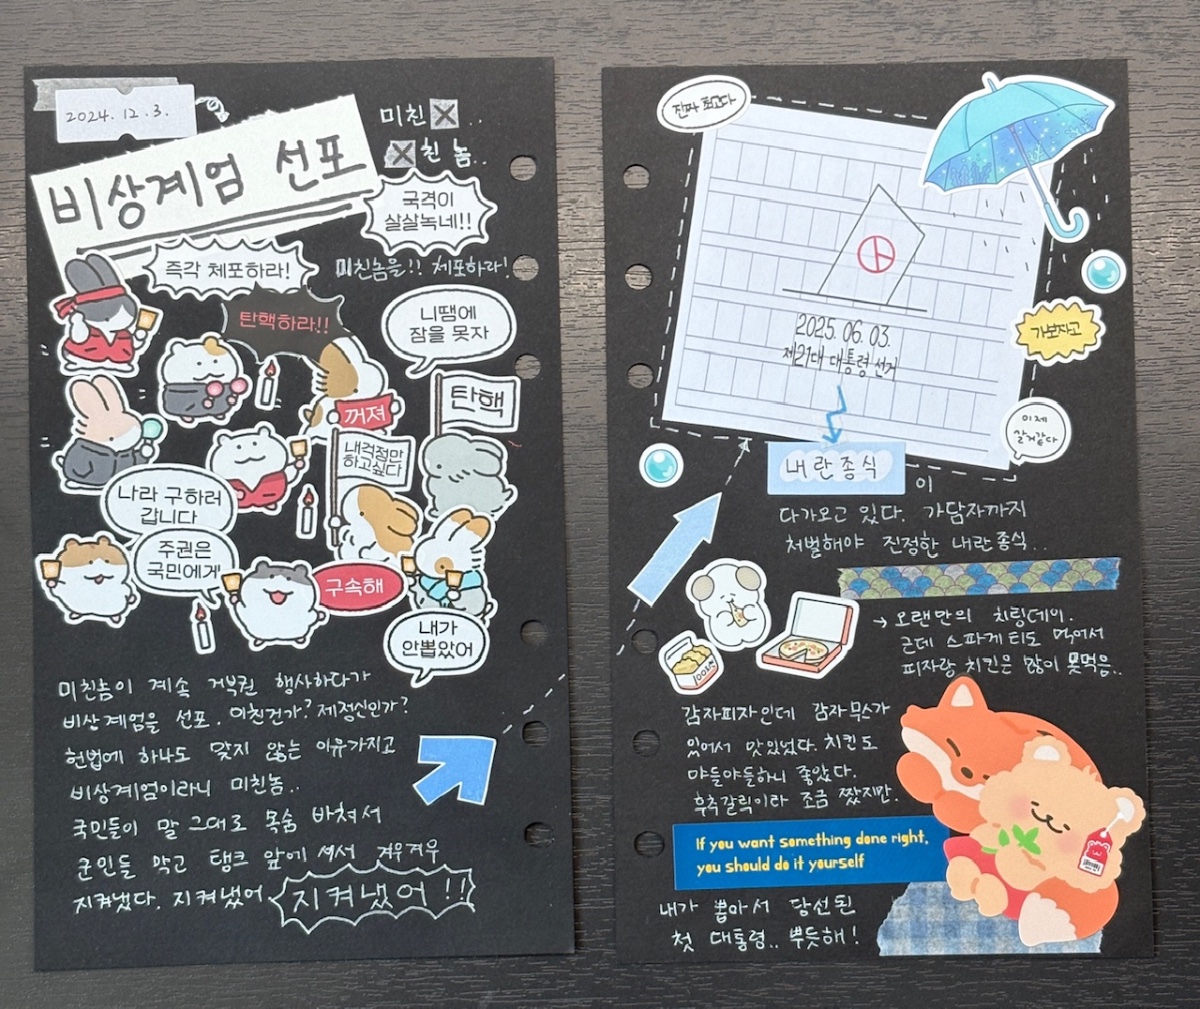 2024. 12. 3.
비상계엄 선포
미친 ..
친 놈..
국격이
살살녹네!!
즉각 체포하라!
미친놈을!! 체포하라!
탄핵하라!!
니땜에
잠을 못자
꺼져
탄핵
내걱정만
하고싶다
나라 구하러
갑니다
주권은
국민에게
구속해
내가
안뽑았어
미친놈이 계속 거부권 행사하다가
비상계엄을 선포. 미친건가? 제정신인가?
헌법에 하나도 맞지 않는 이유가지고
비상계엄이라니 미친놈..
국민들이 말 그대로 목숨 바쳐서
군인들 막고 탱크 앞에 서서 겨우겨우
지켜냈다. 지켜냈어 지켜냈어!!
진짜 최고다
2025. 06. 03.
제21대 대통령 선거
가보자고
이제
살거같다
내란종식이
다가오고 있다. 가담자까지
처벌해야 진정한 내란종식..
→ 오랜만의 치팅데이.
근데 스파게티도 먹어서
피자랑 치킨은 많이 못먹음..
감자피자인데 감자무스가
있어서 맛있었다. 치킨도
야들야들하니 좋았다.
후추갈릭이라 조금 짰지만.
If you want something done right,
you should do it yourself
내가 뽑아서 당선된
첫 대통령.. 뿌듯해!